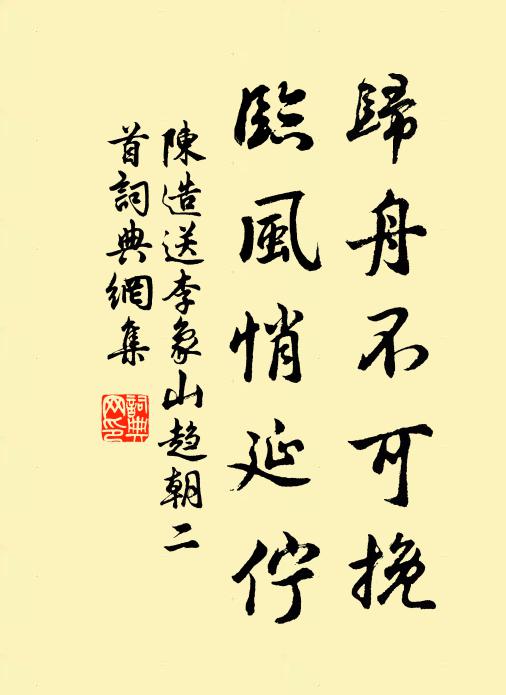 歸舟不可挽
臨風悄延佇
陳造送李象山趨朝二
首詞典網集
詞典
网印